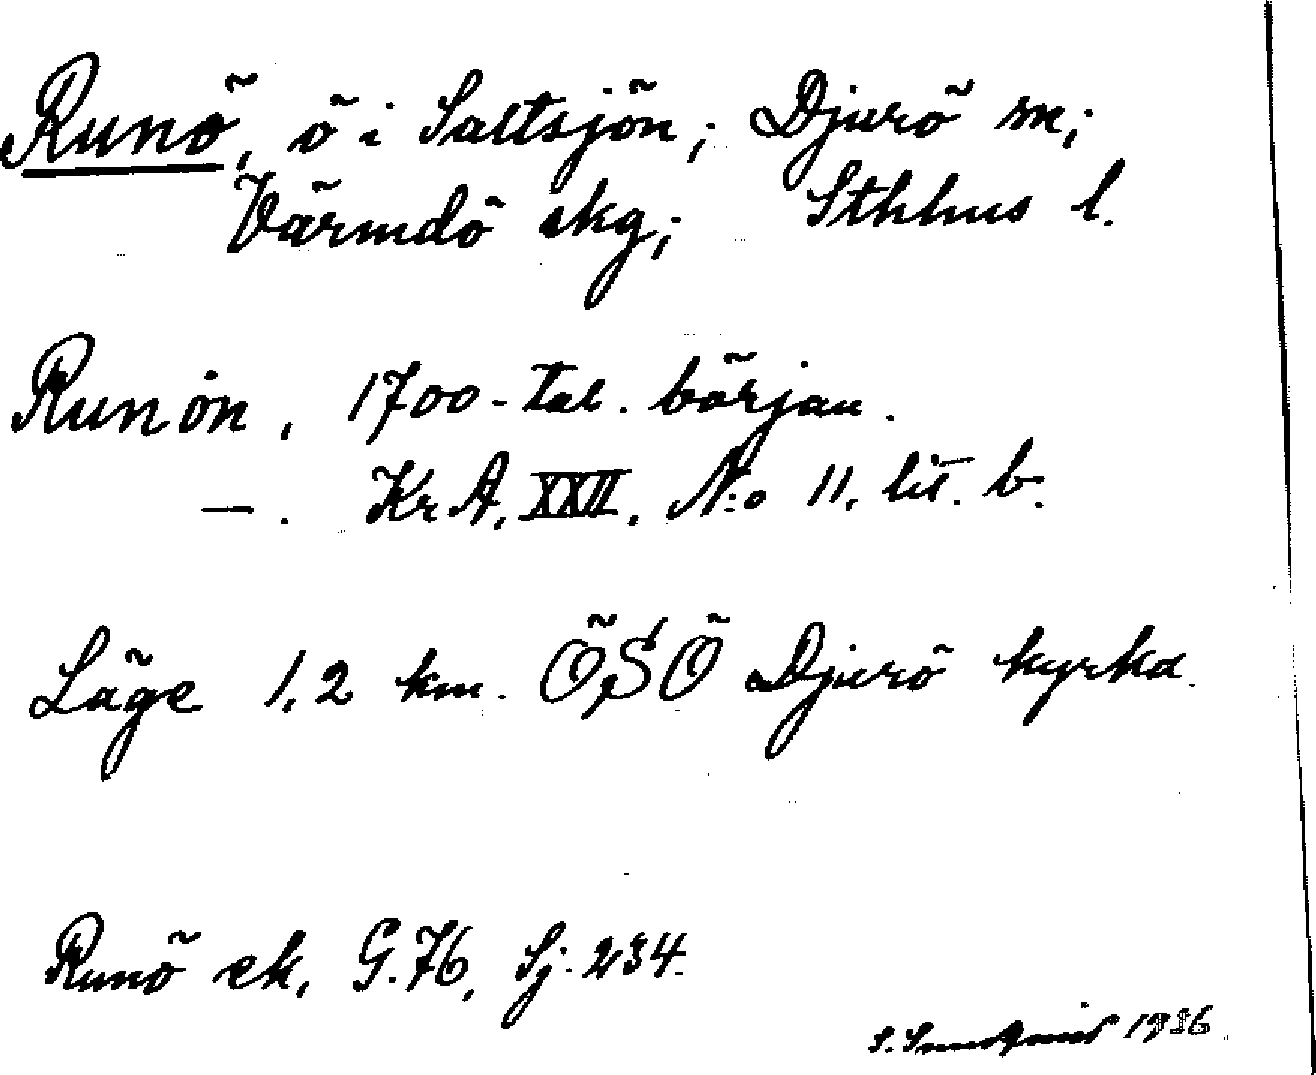 Runö, ö i Saltsjön; Djurö sn;
Värmdö skg; Sthlms l.
Runön, 1700-tal. början.
—. KrA, XXII, N:o 11. lit. b.
Läge 1,2 km. ÖSÖ Djurö kyrka.
Runö ek, G.76, Sj. 234.
S. 1936